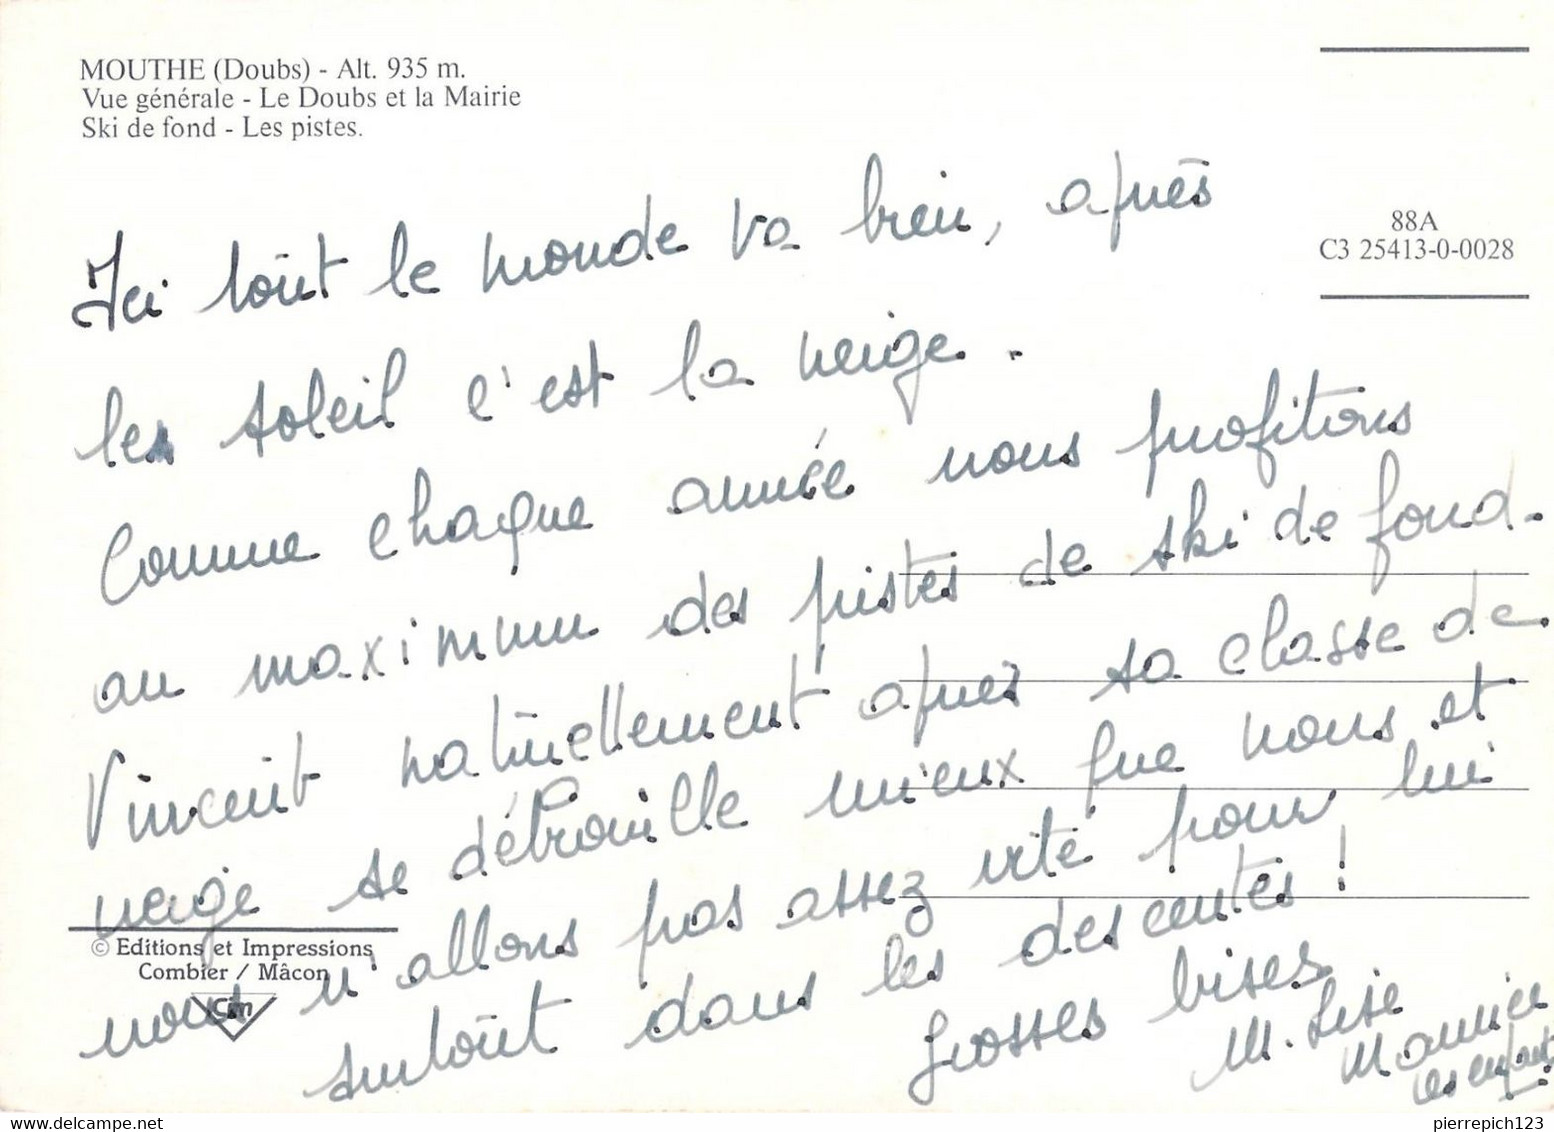 MOUTHE (Doubs) - Alt. 935 m.
Vue générale - Le Doubs et la Mairie
Ski de fond - Les pistes.
88A
C3 25413-0-0028
Ici tout le monde va bien, après
le soleil c'est la neige.
Comme chaque année nous profitons
au maximum des pistes de ski de fond.
Vincent naturellement après sa classe de
neige se débrouille mieux que nous et
nous n'allons pas assez vite pour lui
surtout dans les descentes !
Grosses bises
M. Lise
Maurice
les enfants
© Editions et Impressions
Combier / Mâcon
Cim
pierrepich123